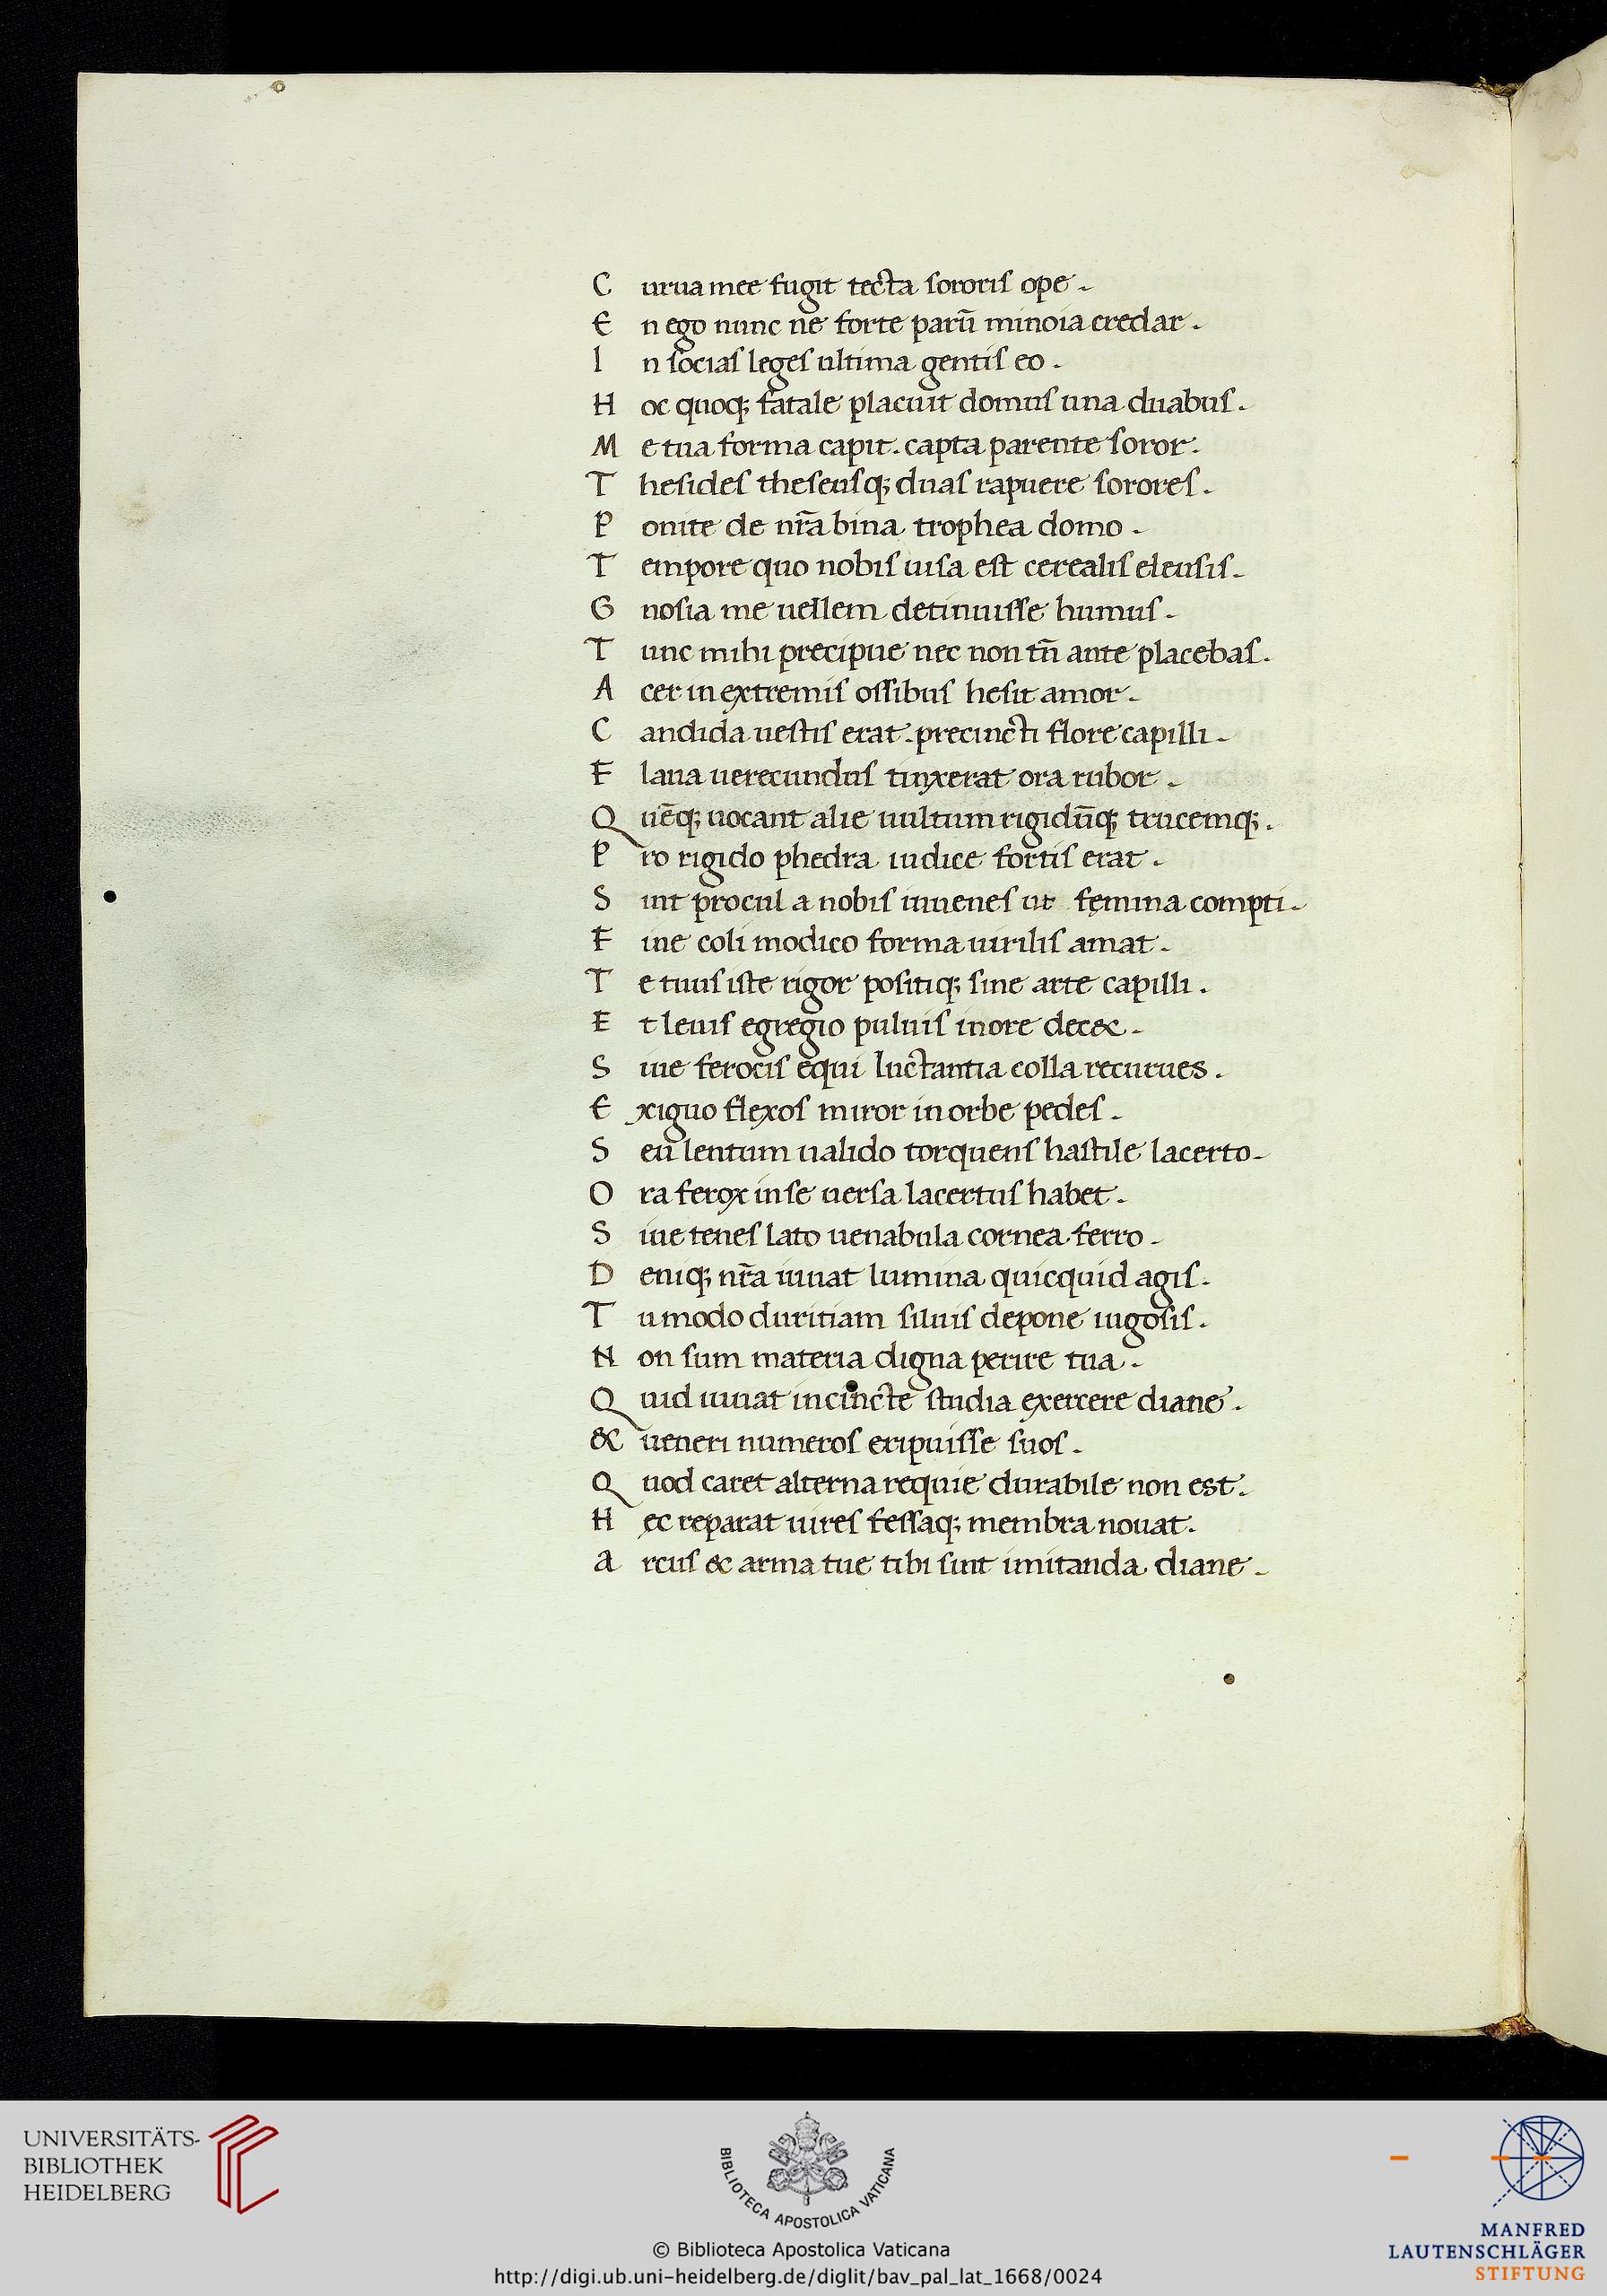 C urua mee fugit tecta sororis ope .
E n ego nunc ne forte parū minoia credar .
I n socias leges ultima gentis eo .
H oc quoq; fatale placuit domus una duabus .
M e tua forma capit . capta parente soror .
T hesides theseusq; duas rapuere sorores .
P onite de nr̄a bina trophea domo .
T empore quo nobis uisa est cerealis eleusis .
G nosia me uellem detinuisse humus .
T unc mihi precipue nec non tn̄ ante placebas .
A cer in extremis ossibus hesit amor .
C andida uestis erat . precincti flore capilli .
F laua uerecundus tinxerat ora rubor .
Q uēq; uocant alie uultum rigidūq; trucemq; .
P ro rigido phedra iudice fortis erat .
S int procul a nobis iuuenes ut femina compti .
F ine coli modico forma uirilis amat .
T e tuus iste rigor positiq; sine arte capilli .
E t leuis egregio puluis in ore dec& .
S iue ferocis equi luctantia colla recurues .
E xiguo flexos miror in orbe pedes .
S eu lentum ualido torquens hastile lacerto .
O ra ferox in se uersa lacertus habet .
S iue tenes lato uenabula cornea ferro .
D eniq; nr̄a iuuat lumina quicquid agis .
T u modo duritiam siluis depone iugosis .
N on sum materia digna perire tua .
Q uid iuuat incincte studia exercere diane .
& ueneri numeros eripuisse suos .
Q uod caret alterna requie durabile non est .
H ec reparat uires fessaq; membra nouat .
a rcus & arma tue tibi sunt imitanda diane .
UNIVERSITÄTS-
BIBLIOTHEK
HEIDELBERG
BIBLIOTECA APOSTOLICA VATICANA
© Biblioteca Apostolica Vaticana
http://digi.ub.uni-heidelberg.de/diglit/bav_pal_lat_1668/0024
MANFRED
LAUTENSCHLÄGER
STIFTUNG